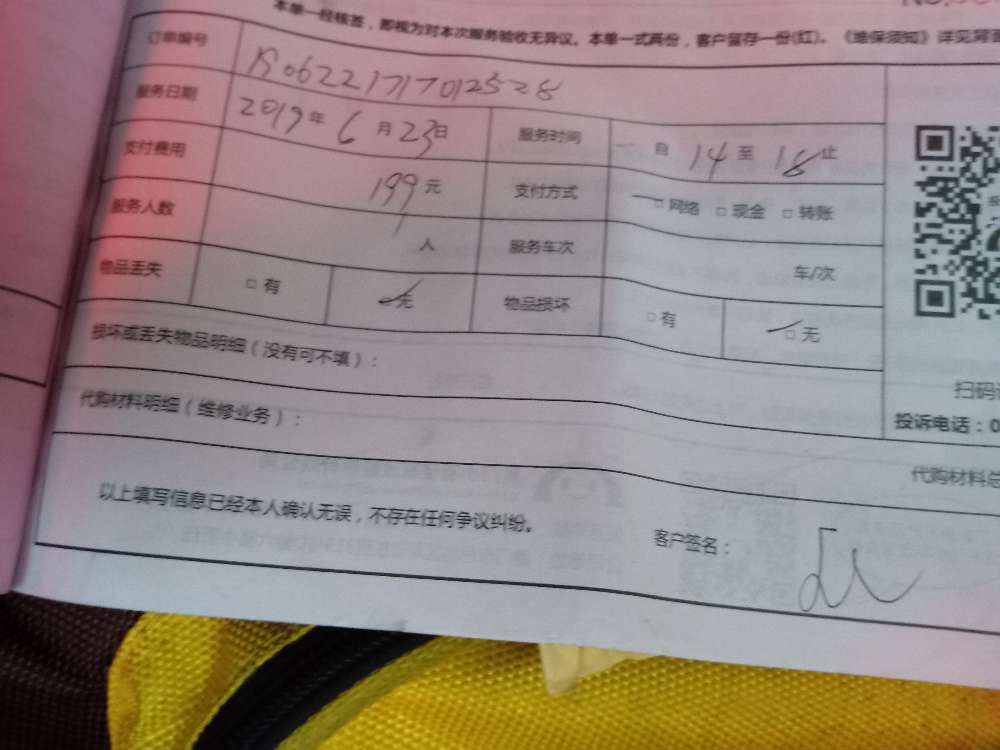 本单一经核签，即视为对本次服务验收无异议。本单一式两份，客户留存一份(红)。《维保须知》详见背
订单编号
服务日期 2019年6月23日 服务时间 自14至18止
支付费用 199元 支付方式 □网络 □现金 □转账
服务人数 1人 服务车次 车/次
物品丢失 □有 □无 物品损坏 □有 □无
损坏或丢失物品明细（没有可不填）：
扫码
投诉电话：0
代购材料明细（维修业务）：
代购材料总
以上填写信息已经本人确认无误，不存在任何争议纠纷。
客户签名：